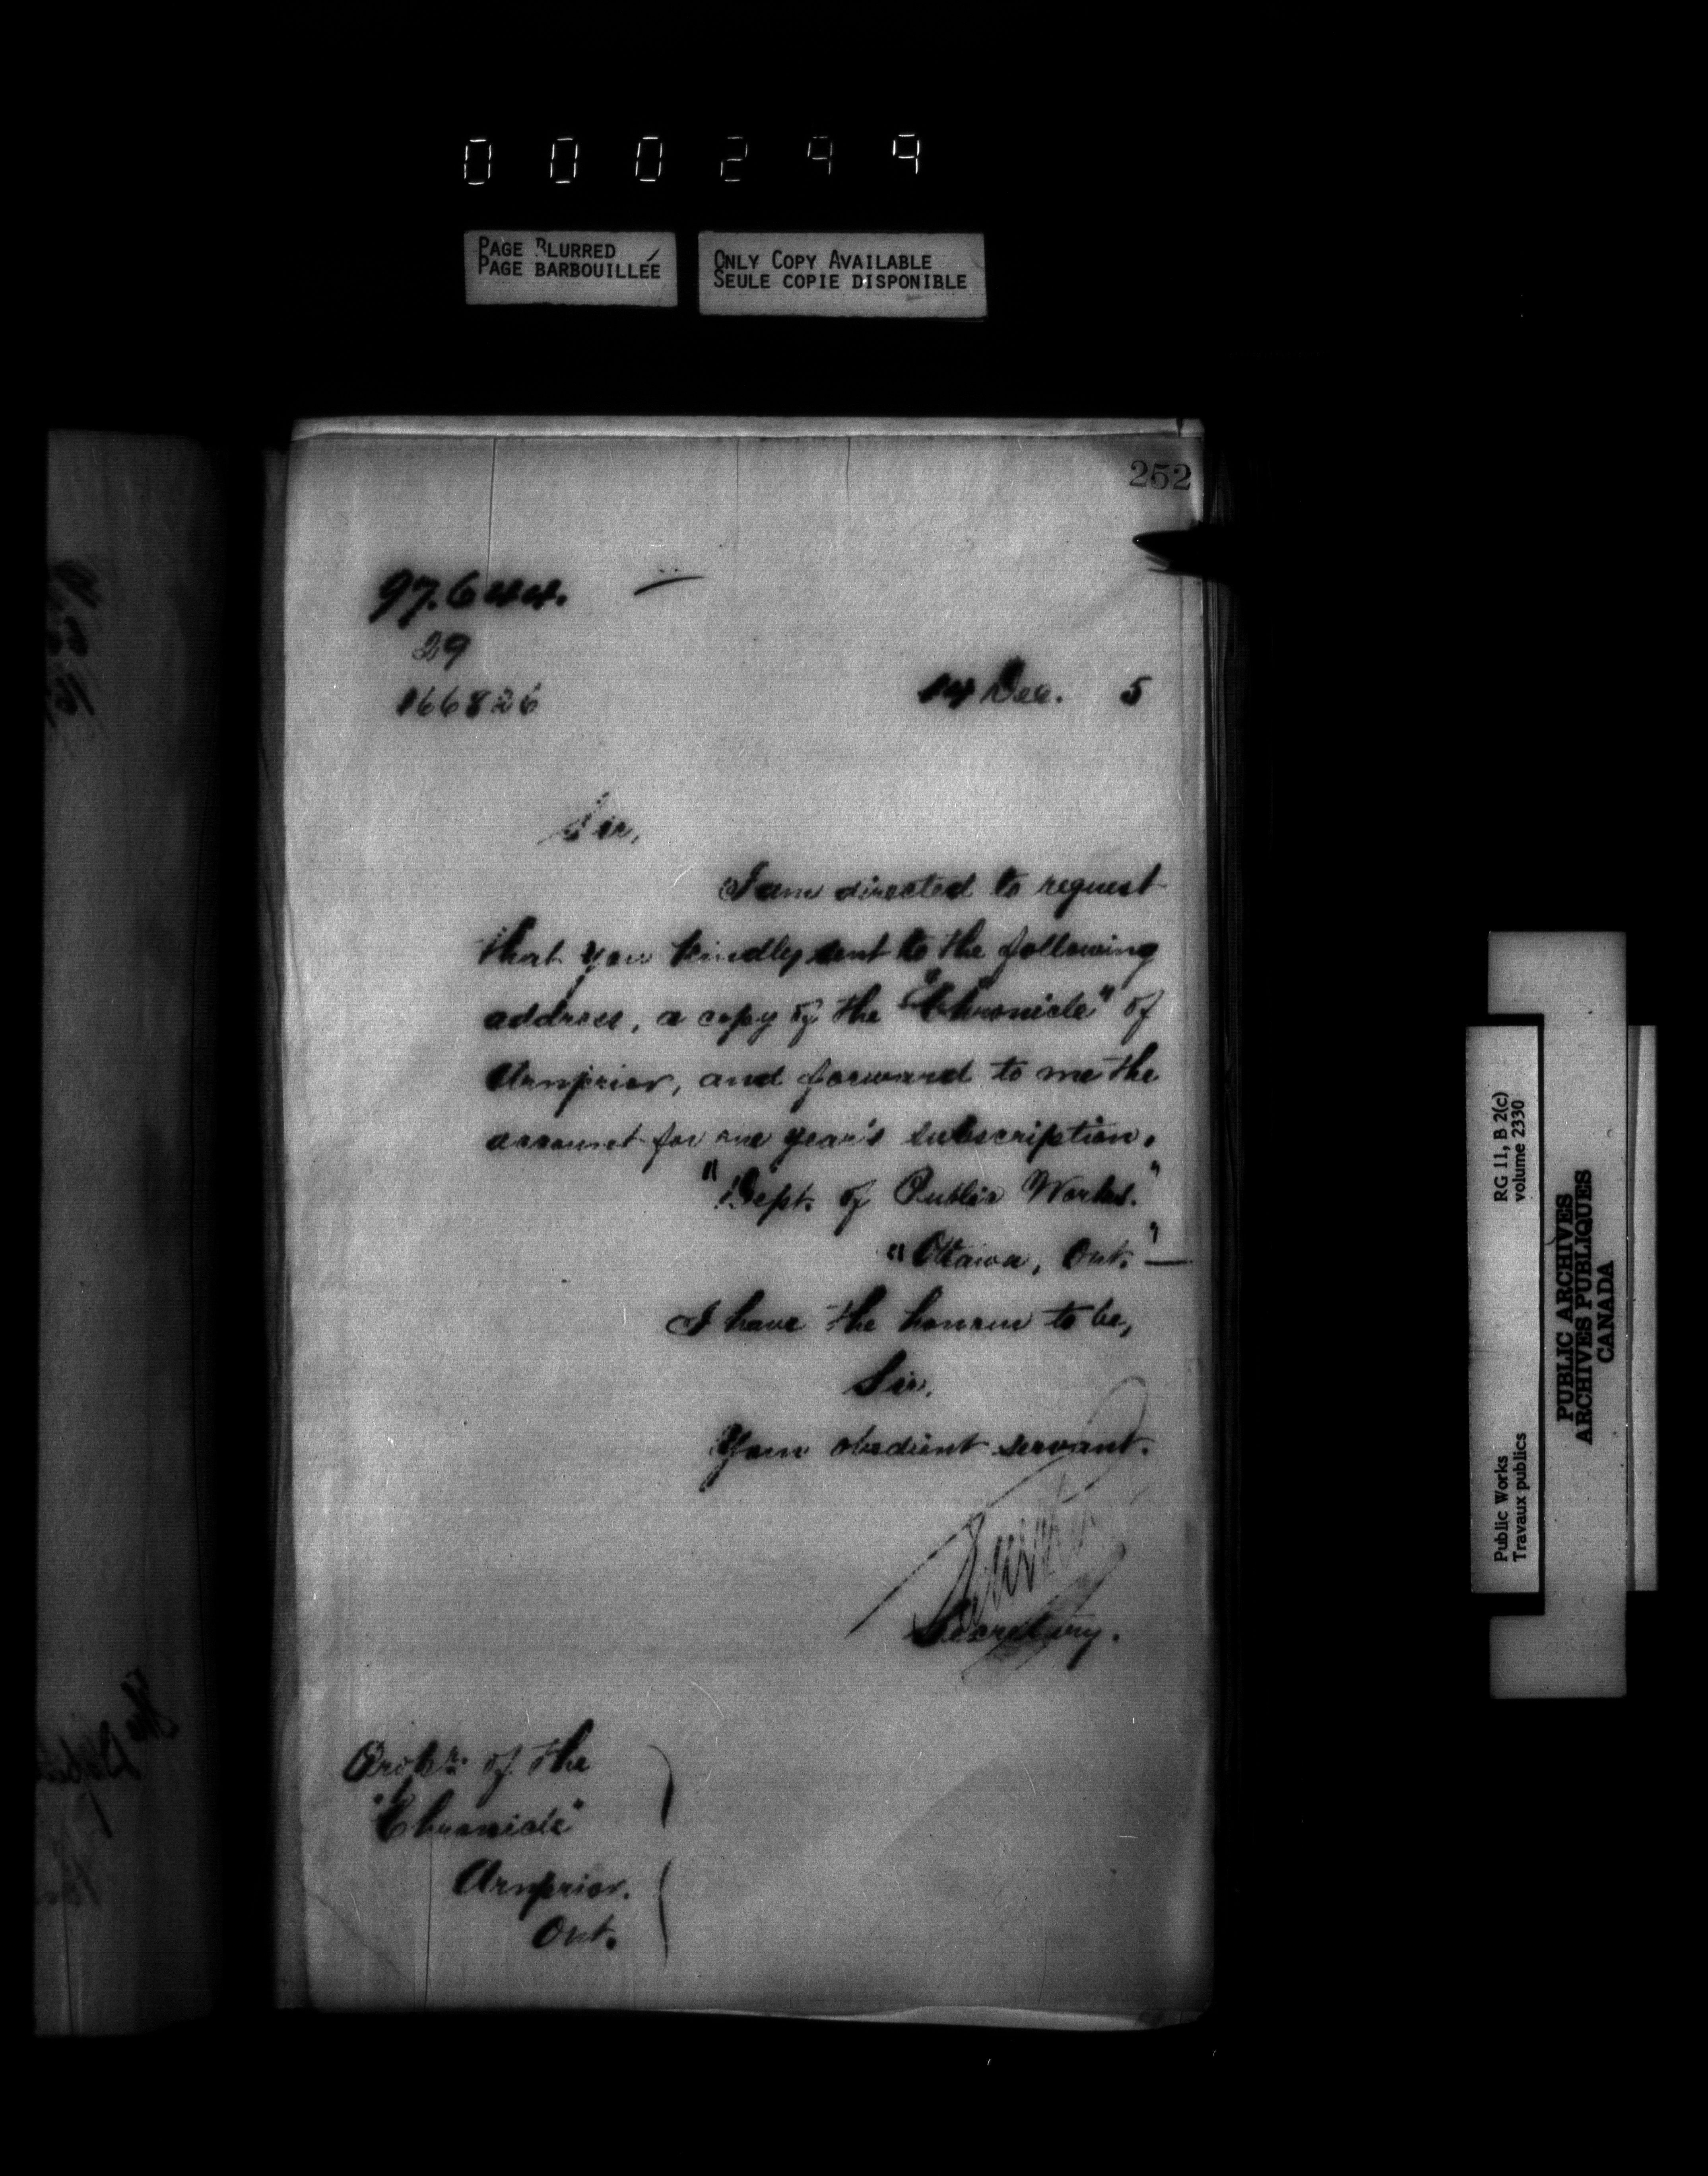 000299
PAGE BLURRED
PAGE BARBOUILLÉE
ONLY COPY AVAILABLE
SEULE COPIE DISPONIBLE
252
97.644.
29
166826
14 Dec. 5
Sir,
I am directed to request
that you kindly sent to the following
address, a copy of the "Chronicle" of
Arnprior, and forward to me the
account for one year's subscription.
"Dept. of Public Works."
"Ottawa, Ont."—
I have the honour to be,
Sir,
Your obedient servant.
Secretary.
of the
"Chronicle"
Arnprior.
Ont.
Public Works
Travaux publics
RG 11, B 2(c)
volume 2330
PUBLIC ARCHIVES
ARCHIVES PUBLIQUES
CANADA